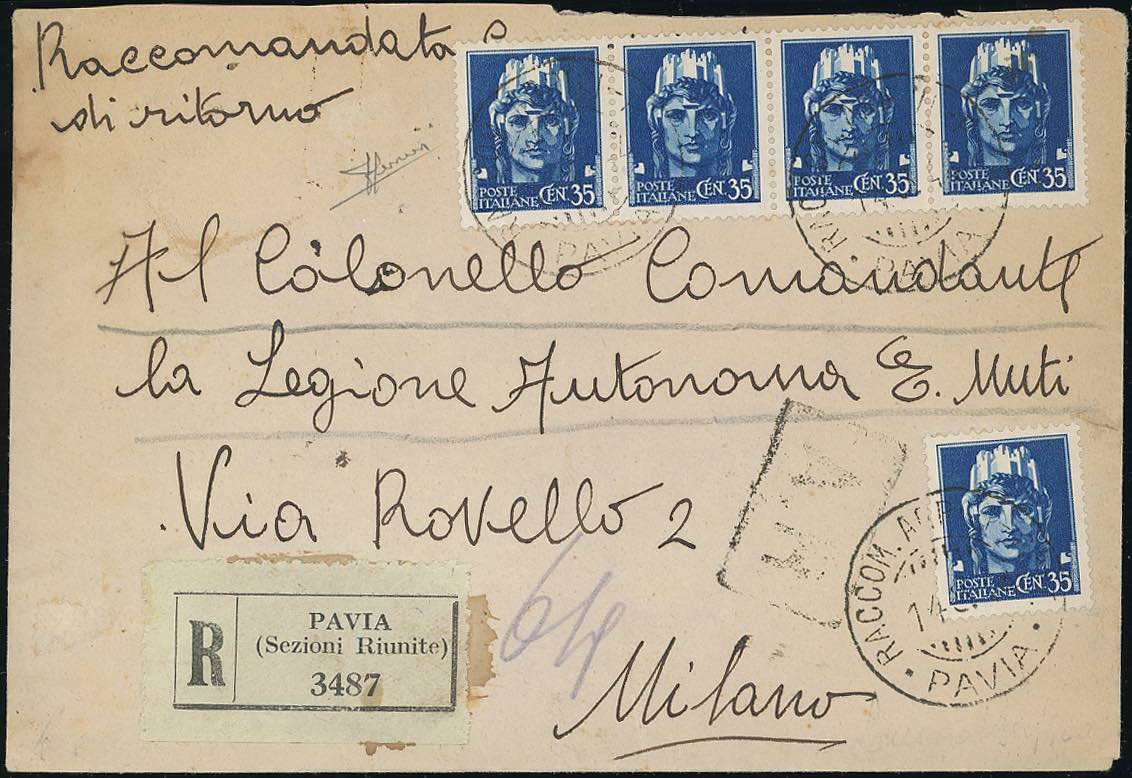 Raccomandata
di ritorno
POSTE ITALIANE CEN. 35
POSTE ITALIANE CEN. 35
POSTE ITALIANE CEN. 35
POSTE ITALIANE CEN. 35
PAVIA
PAVIA
Al Colonello Comandante
la Legione Autonoma E. Muti
Via Rovello 2
POSTE ITALIANE CEN. 35
RACCOM.
14
PAVIA
R
PAVIA
(Sezioni Riunite)
3487
Milano